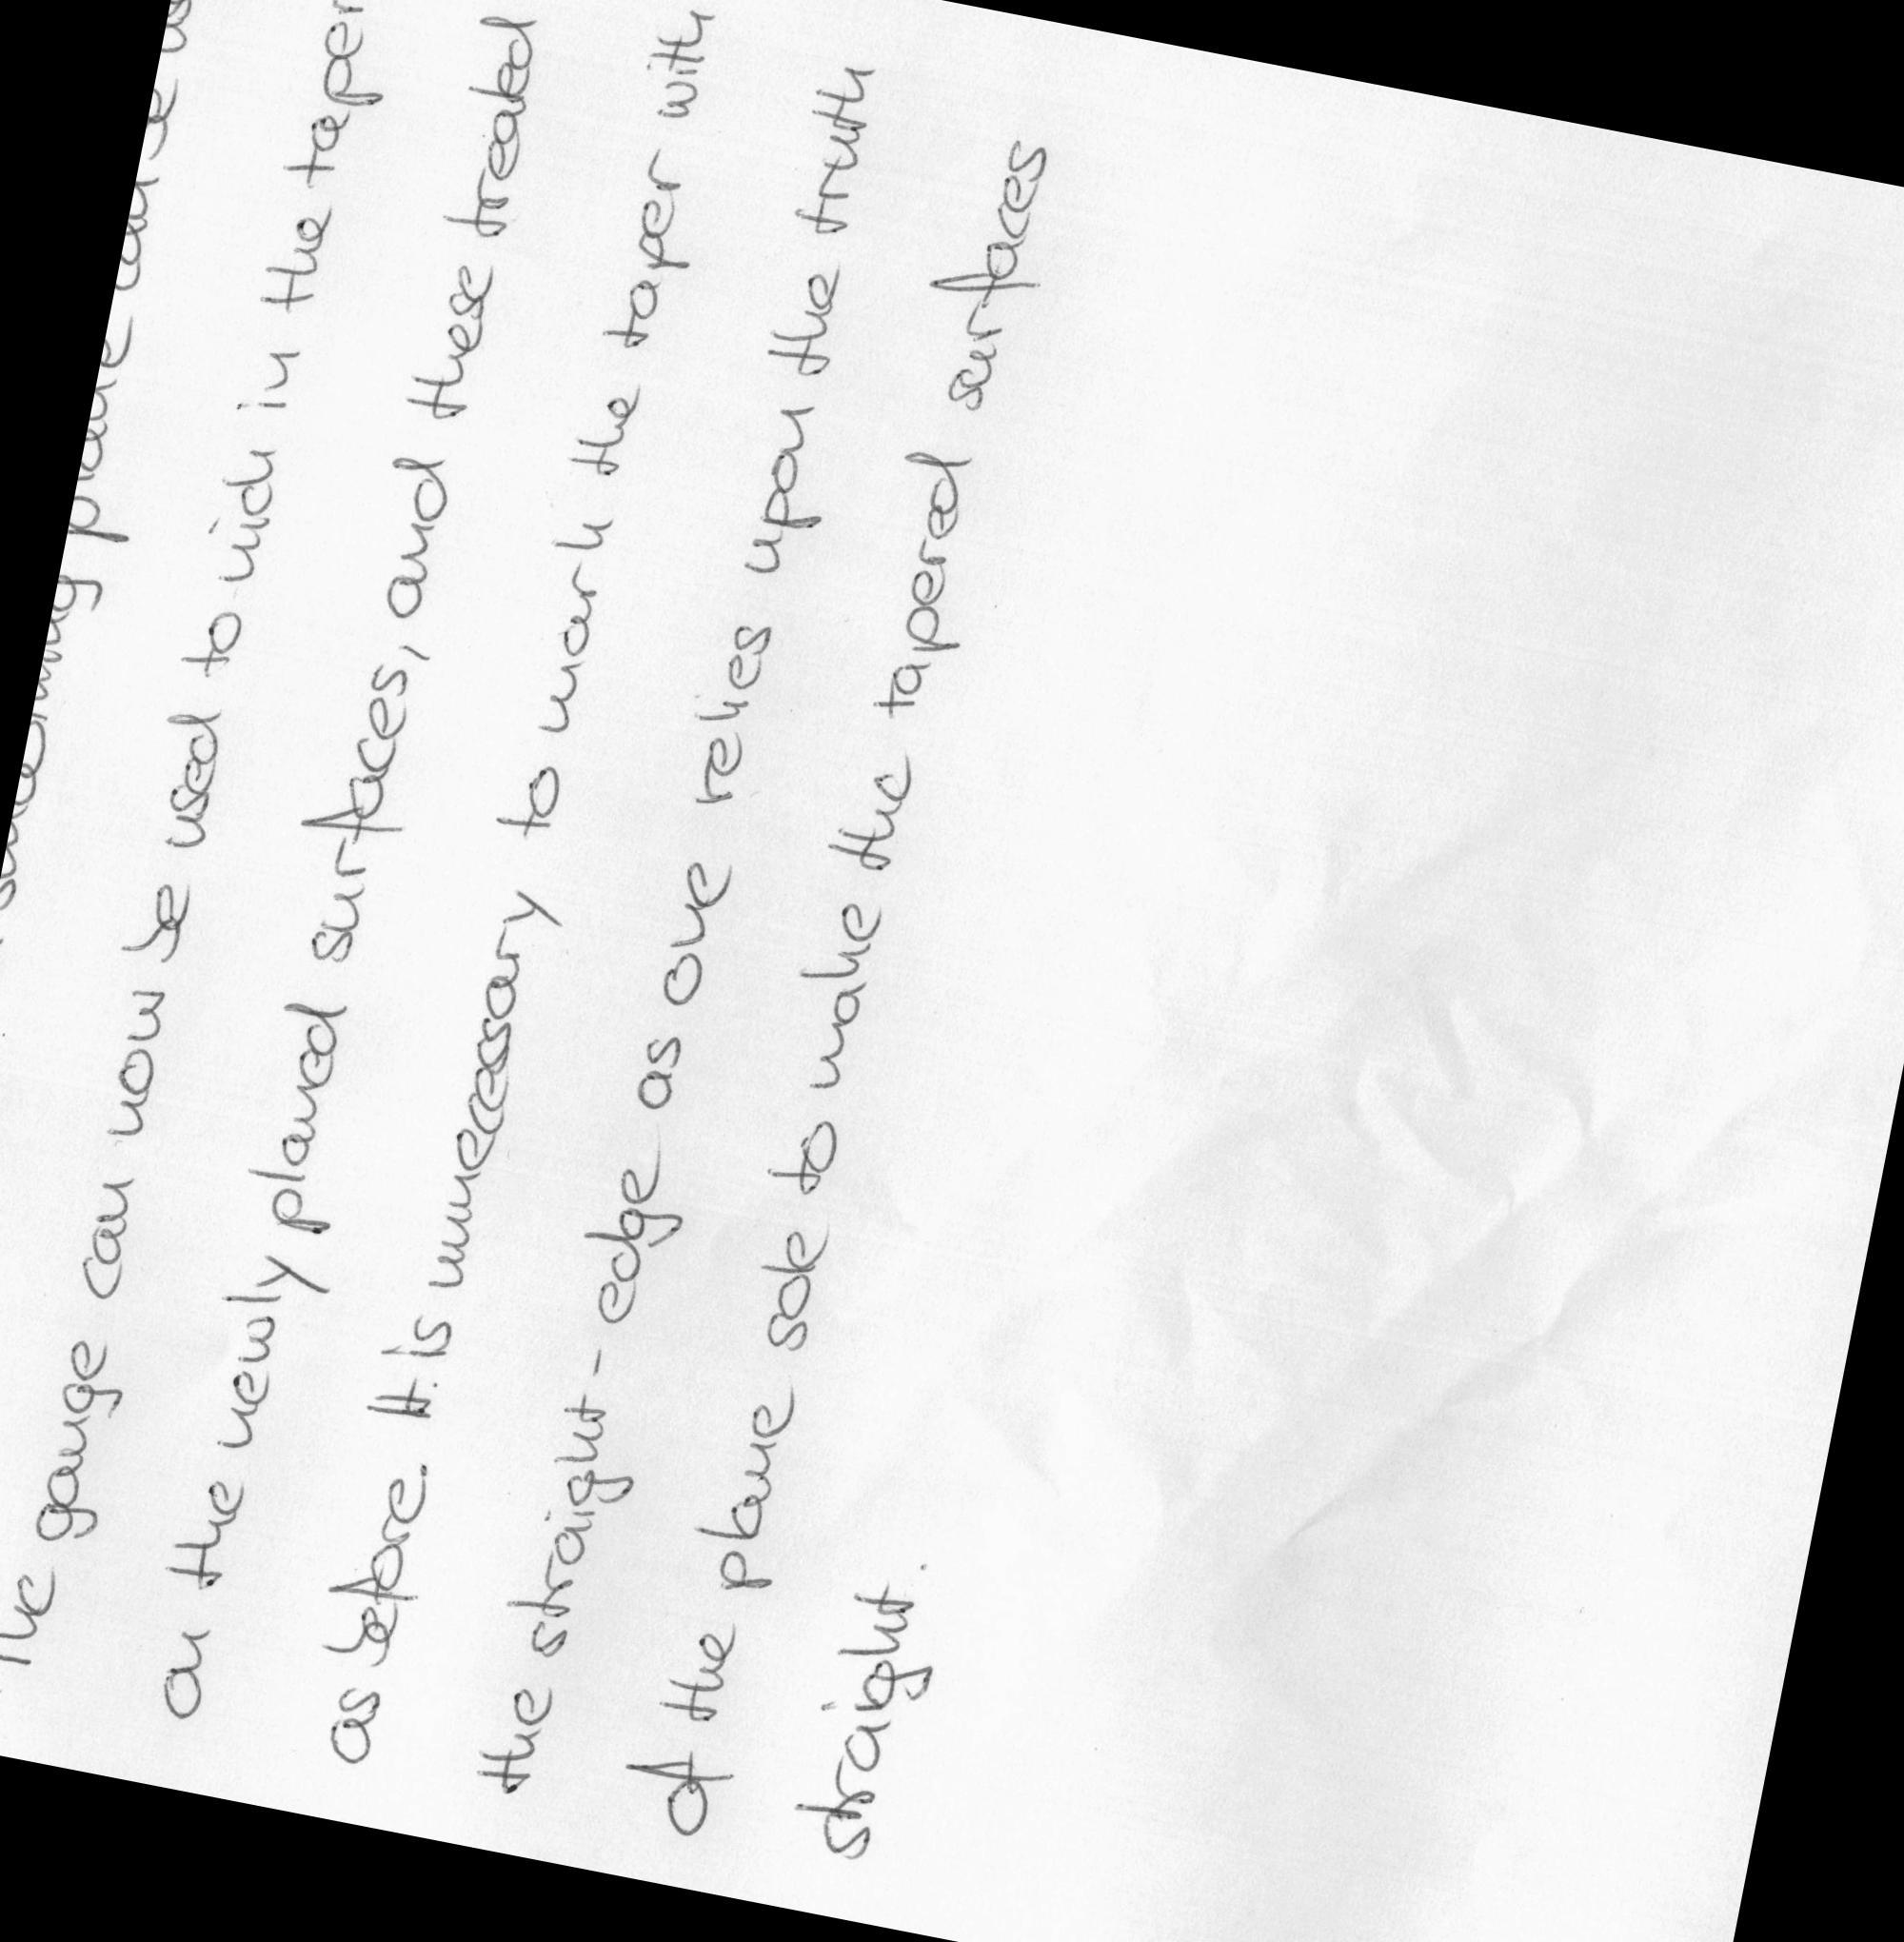 plane can be
The gauge can now be used to nich in the taper
on the newly planed surfaces, and these treated
as before. It is unnecessary to mark the taper with
the straight-edge as one relies upon the truth
of the plane sole to make the tapered surfaces
straight.